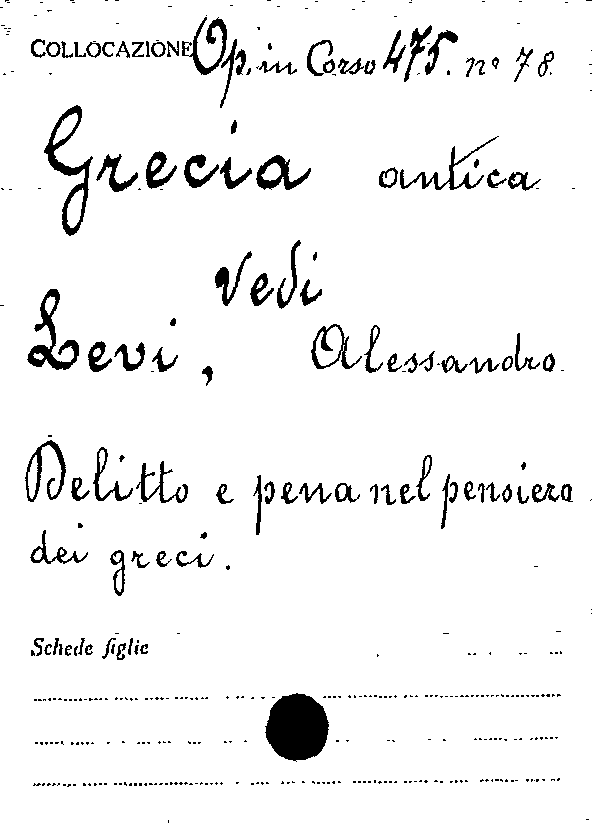 COLLOCAZIONE Op. in Corso 475. nº 78
Grecia antica
Vedi
Levi, Alessandro
Delitto e pena nel pensiero
dei greci.
Schede figlie